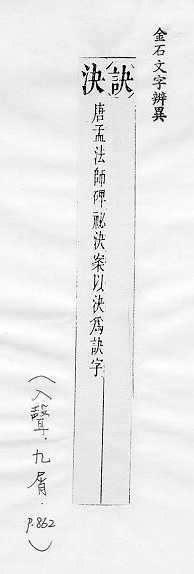 金石文字辨異
訣
決
唐孟法師碑祕決案以決爲訣字
(入聲.九屑.p.862)